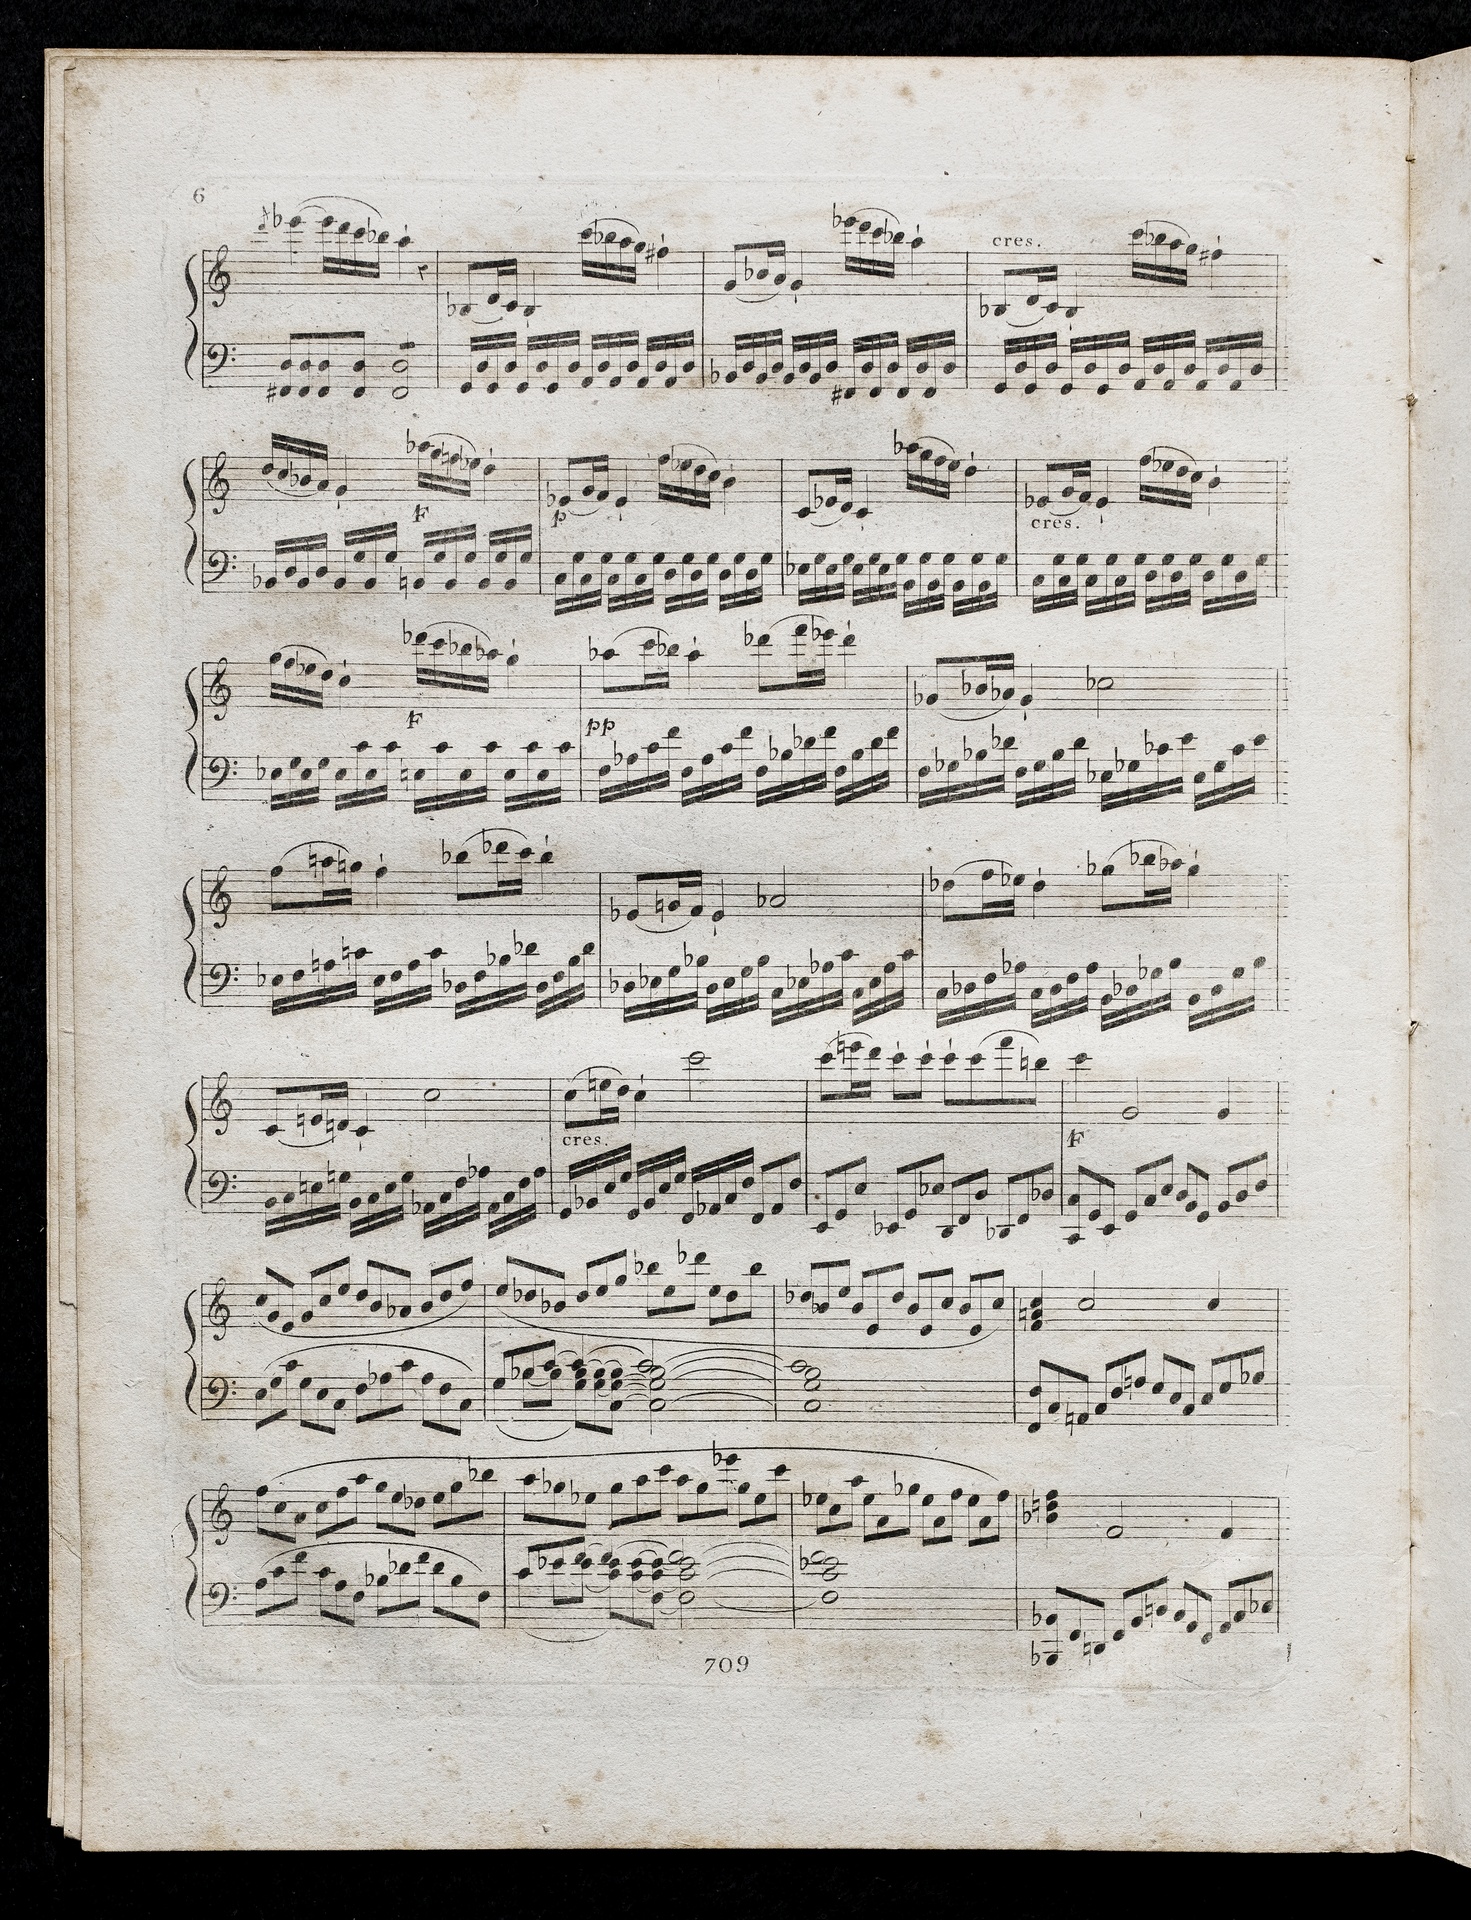 6
cres.
F
p
cres.
F
pp
cres.
F
709